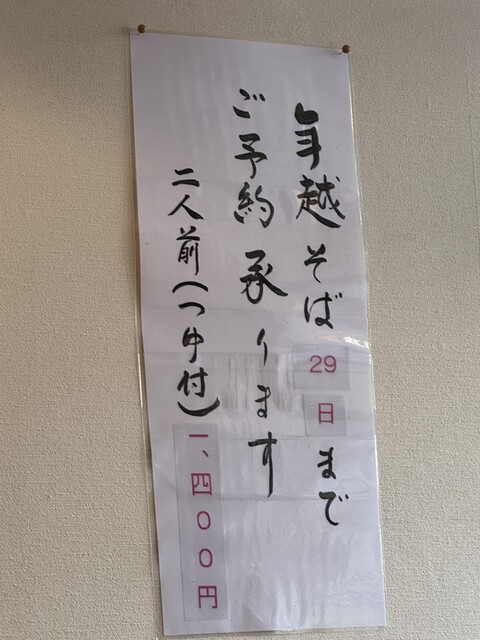 年越そば29日まで
ご予約承ります
二人前(つゆ付)一、四〇〇円